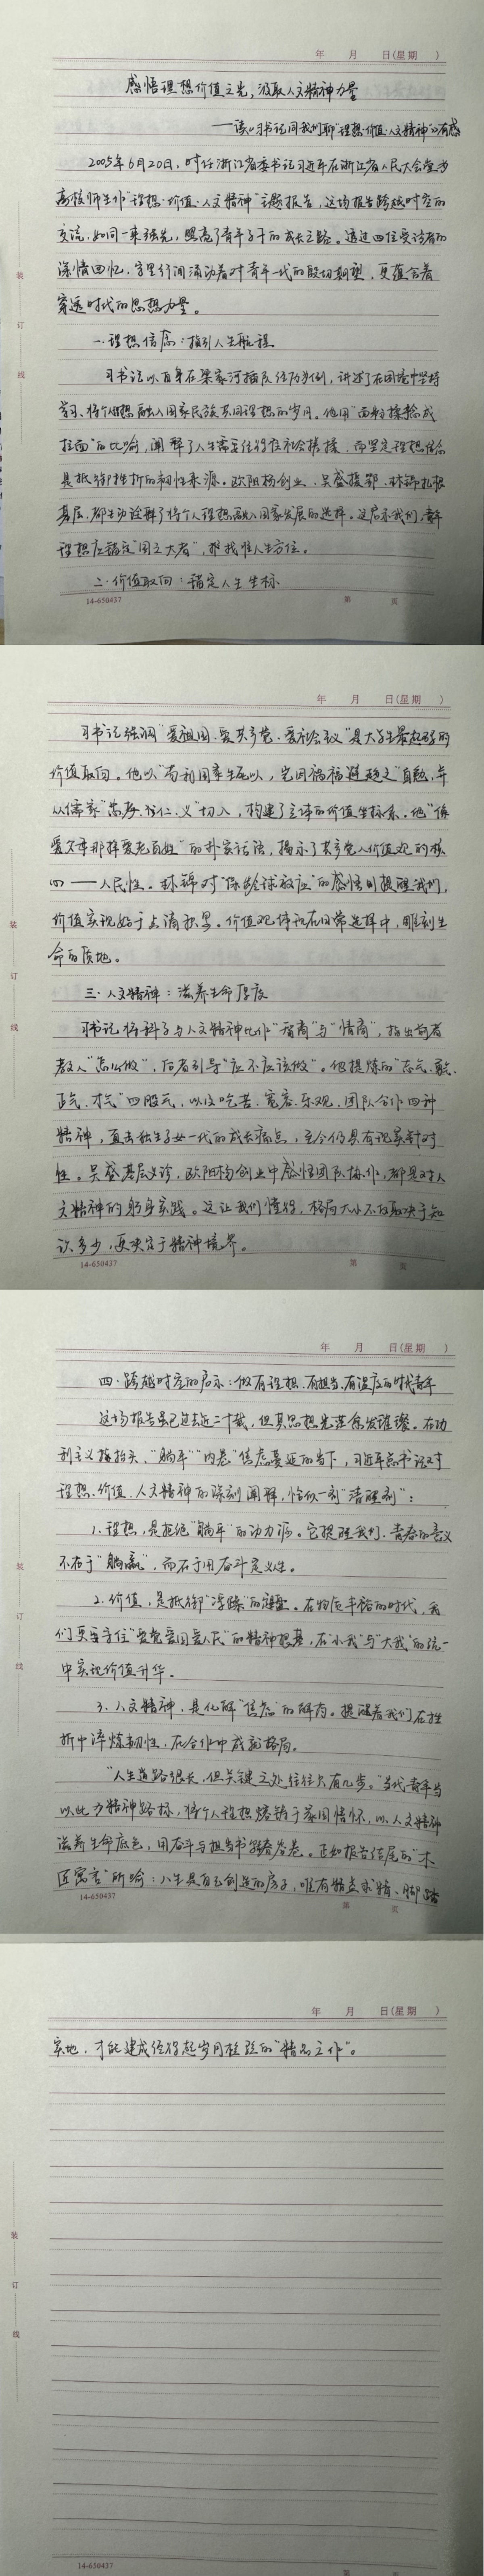 年 月 日(星期 )
感悟理想价值之光,汲取人文精神力量
——读《习书记同我们聊“理想·价值·人文精神”》有感
2005年6月20日,时任浙江省委书记习近平在浙江省人民大会堂为
高校师生作“理想·价值·人文精神”主题报告,这场报告跨越时空的
交流,如同一束强光,照亮了青年学子的成长之路。透过四位受访者的
深情回忆,字里行间涌动着对青年一代的殷切期望,更蕴含着
穿透时代的思想力量。
一·理想信念:指引人生航程
习书记以自身在梁家河插队经历为例,讲述了在困境中坚持
学习、将个人理想融入国家民族共同理想的岁月。他用“面粉揉捻成
拉面”的比喻,阐释了人生需要经得住社会揉搓,而坚定理想信念
是抵御挫折的韧性来源。欧阳杨创业、吴盛援鄂、林锦扎根
基层,都生动诠释了将个人理想融入国家发展的选择。这启示我们,青年
理想应锚定“国之大者”,并找准人生方位。
二·价值取向:锚定人生坐标
14-650437 第 页
装
订
线
年 月 日(星期 )
习书记强调“爱祖国、爱共产党、爱社会主义”是大学生最起码的
价值取向。他以“苟利国家生死以,岂因祸福避趋之”自勉,并
从儒家“孝、仁、义”切入,构建了立体的价值坐标系。他“谁
爱不幸那样爱老百姓”的朴实话语,揭示了共产党人价值观的核
心——人民性。林锦对“保龄球效应”的感悟则提醒我们,
价值实现始于点滴积累。价值观体现在日常选择中,雕刻生
命的质地。
三·人文精神:滋养生命厚度
习书记将科学与人文精神比作“智商”与“情商”,指出前者
教人“怎么做”,后者引导“应不应该做”。他提炼的“志气、勇气、
正气、才气”四股气,以及吃苦、宽容、乐观、团队合作四种
精神,直击独生子女一代的成长痛点,至今仍具有现实针对
性。吴盛基层义诊,欧阳杨创业中感悟团队协作,都是对人
文精神的躬身实践。这让我们懂得,格局大小不仅取决于知
识多少,更决定于精神境界。
14-650437 第 页
装
订
线
年 月 日(星期 )
四·跨越时空的启示:做有理想、有担当、有温度的时代青年
这场报告虽已过去近二十载,但其思想光芒愈发璀璨。在功
利主义抬头、“躺平”“内卷”焦虑蔓延的当下,习近平总书记对
理想、价值、人文精神的深刻阐释,恰似一剂“清醒剂”:
1.理想,是拒绝“躺平”的动力源。它提醒我们,青春的意义
不在于“躺赢”,而在于用奋斗定义人生。
2.价值,是抵御“浮躁”的罗盘。在物质丰裕的时代,我
们更要守住“爱党爱国爱人民”的精神根基,在“小我”与“大我”的统一
中实现价值升华。
3.人文精神,是化解“焦虑”的解药。提醒着我们在挫
折中淬炼韧性,在合作中成就格局。
“人生道路很长,但关键之处往往只有几步。”当代青年当
以此为精神路标,将个人理想熔铸于家国情怀,以人文精神
滋养生命底色,用奋斗与担当书写青春答卷。正如报告结尾的“木
匠寓言”所喻:人生是自己创造的房子,唯有精益求精、脚踏
14-650437 第 页
装
订
线
年 月 日(星期 )
实地,才能建成经得起岁月检验的“精品之作”。
装
订
线
14-650437 第 页